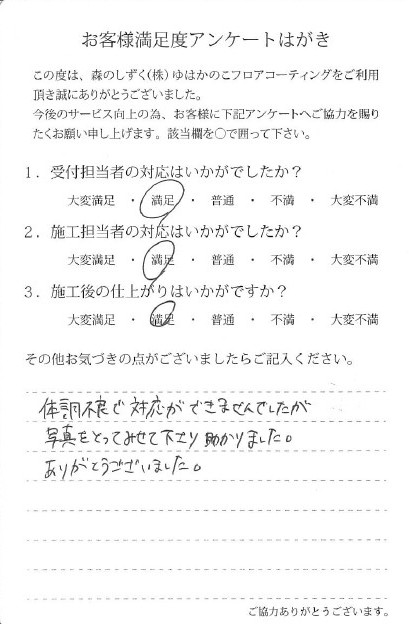 お客様満足度アンケートはがき
この度は、森のしずく(株)ゆはかのこフロアコーティングをご利用
頂き誠にありがとうございました。
今後のサービス向上の為、お客様に下記アンケートへご協力を賜り
たくお願い申し上げます。該当欄を〇で囲って下さい。
1．受付担当者の対応はいかがでしたか？
大変満足 ・ 満足 ・ 普通 ・ 不満 ・ 大変不満
2．施工担当者の対応はいかがでしたか？
大変満足 ・ 満足 ・ 普通 ・ 不満 ・ 大変不満
3．施工後の仕上がりはいかがですか？
大変満足 ・ 満足 ・ 普通 ・ 不満 ・ 大変不満
その他お気づきの点がございましたらご記入ください。
体調不良で対応ができませんでしたが
写真をとってみせて下さり助かりました。
ありがとうございました。
ご協力ありがとうございます。